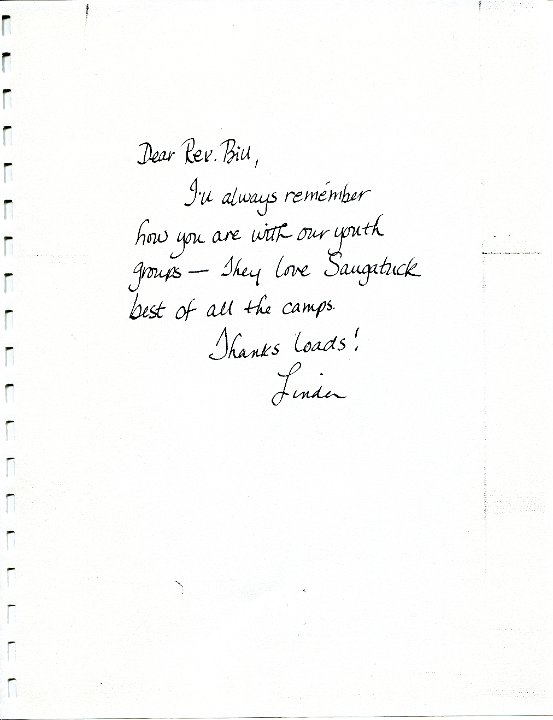 Dear Rev. Bill,
I'll always remember
how you are with our youth
groups — They love Saugatuck
best of all the camps.
Thanks loads!
Linda